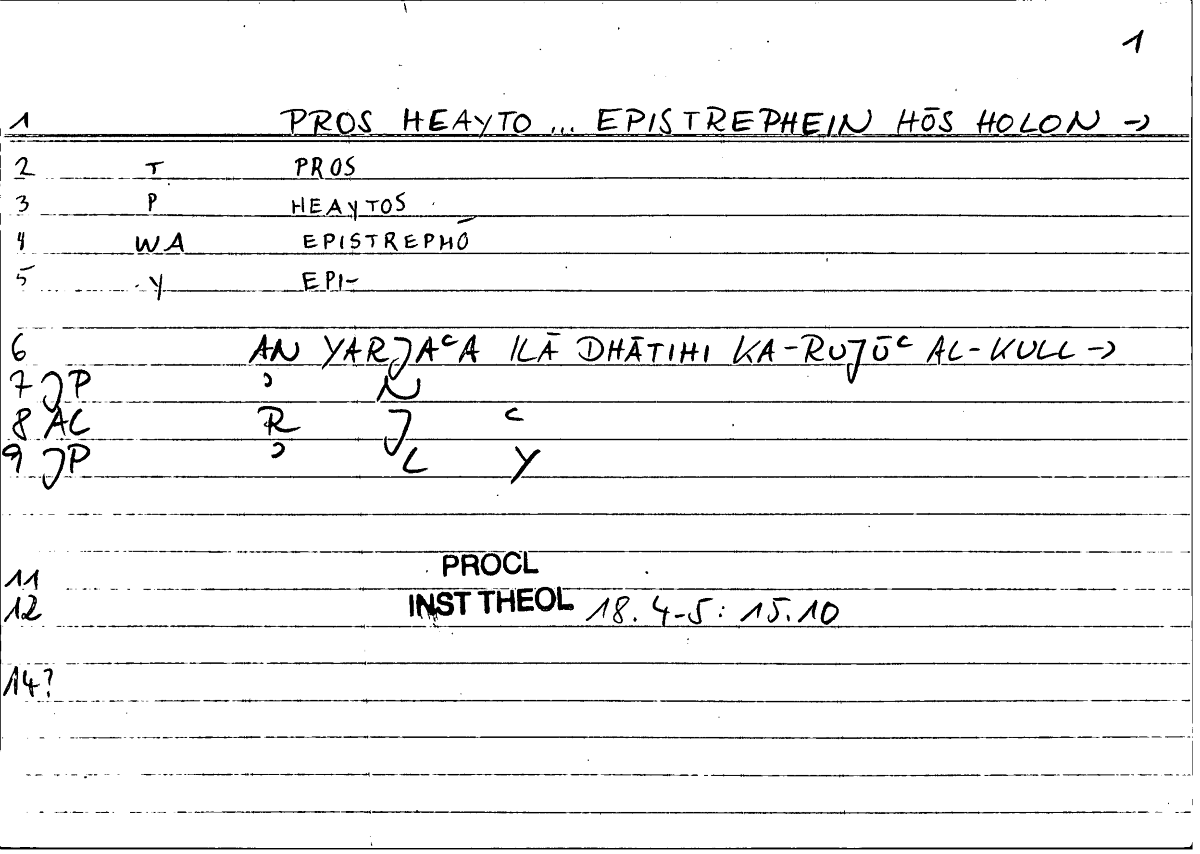 1
1 PROS HEAYTO ... EPISTREPHEIN HŌS HOLON →
2 T PROS
3 P HEAYTOS
4 WA EPISTREPHŌ
5 Y EPI-
6 AN YARJAᶜA ILĀ DHĀTIHI KA-RUJŪᶜ AL-KULL →
7 JP ʾ N
8 AC R J ᶜ
9 JP ʾ L Y
11 PROCL
12 INST THEOL 18.4-5: 15.10
14?